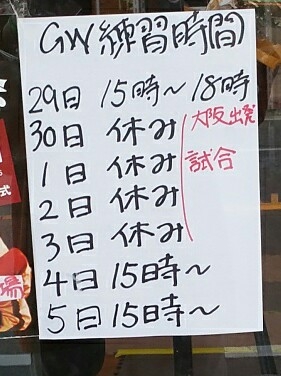 GW練習時間
29日 15時～18時
30日 休み 大阪出発
1日 休み 試合
2日 休み
3日 休み
4日 15時～
5日 15時～
場
式